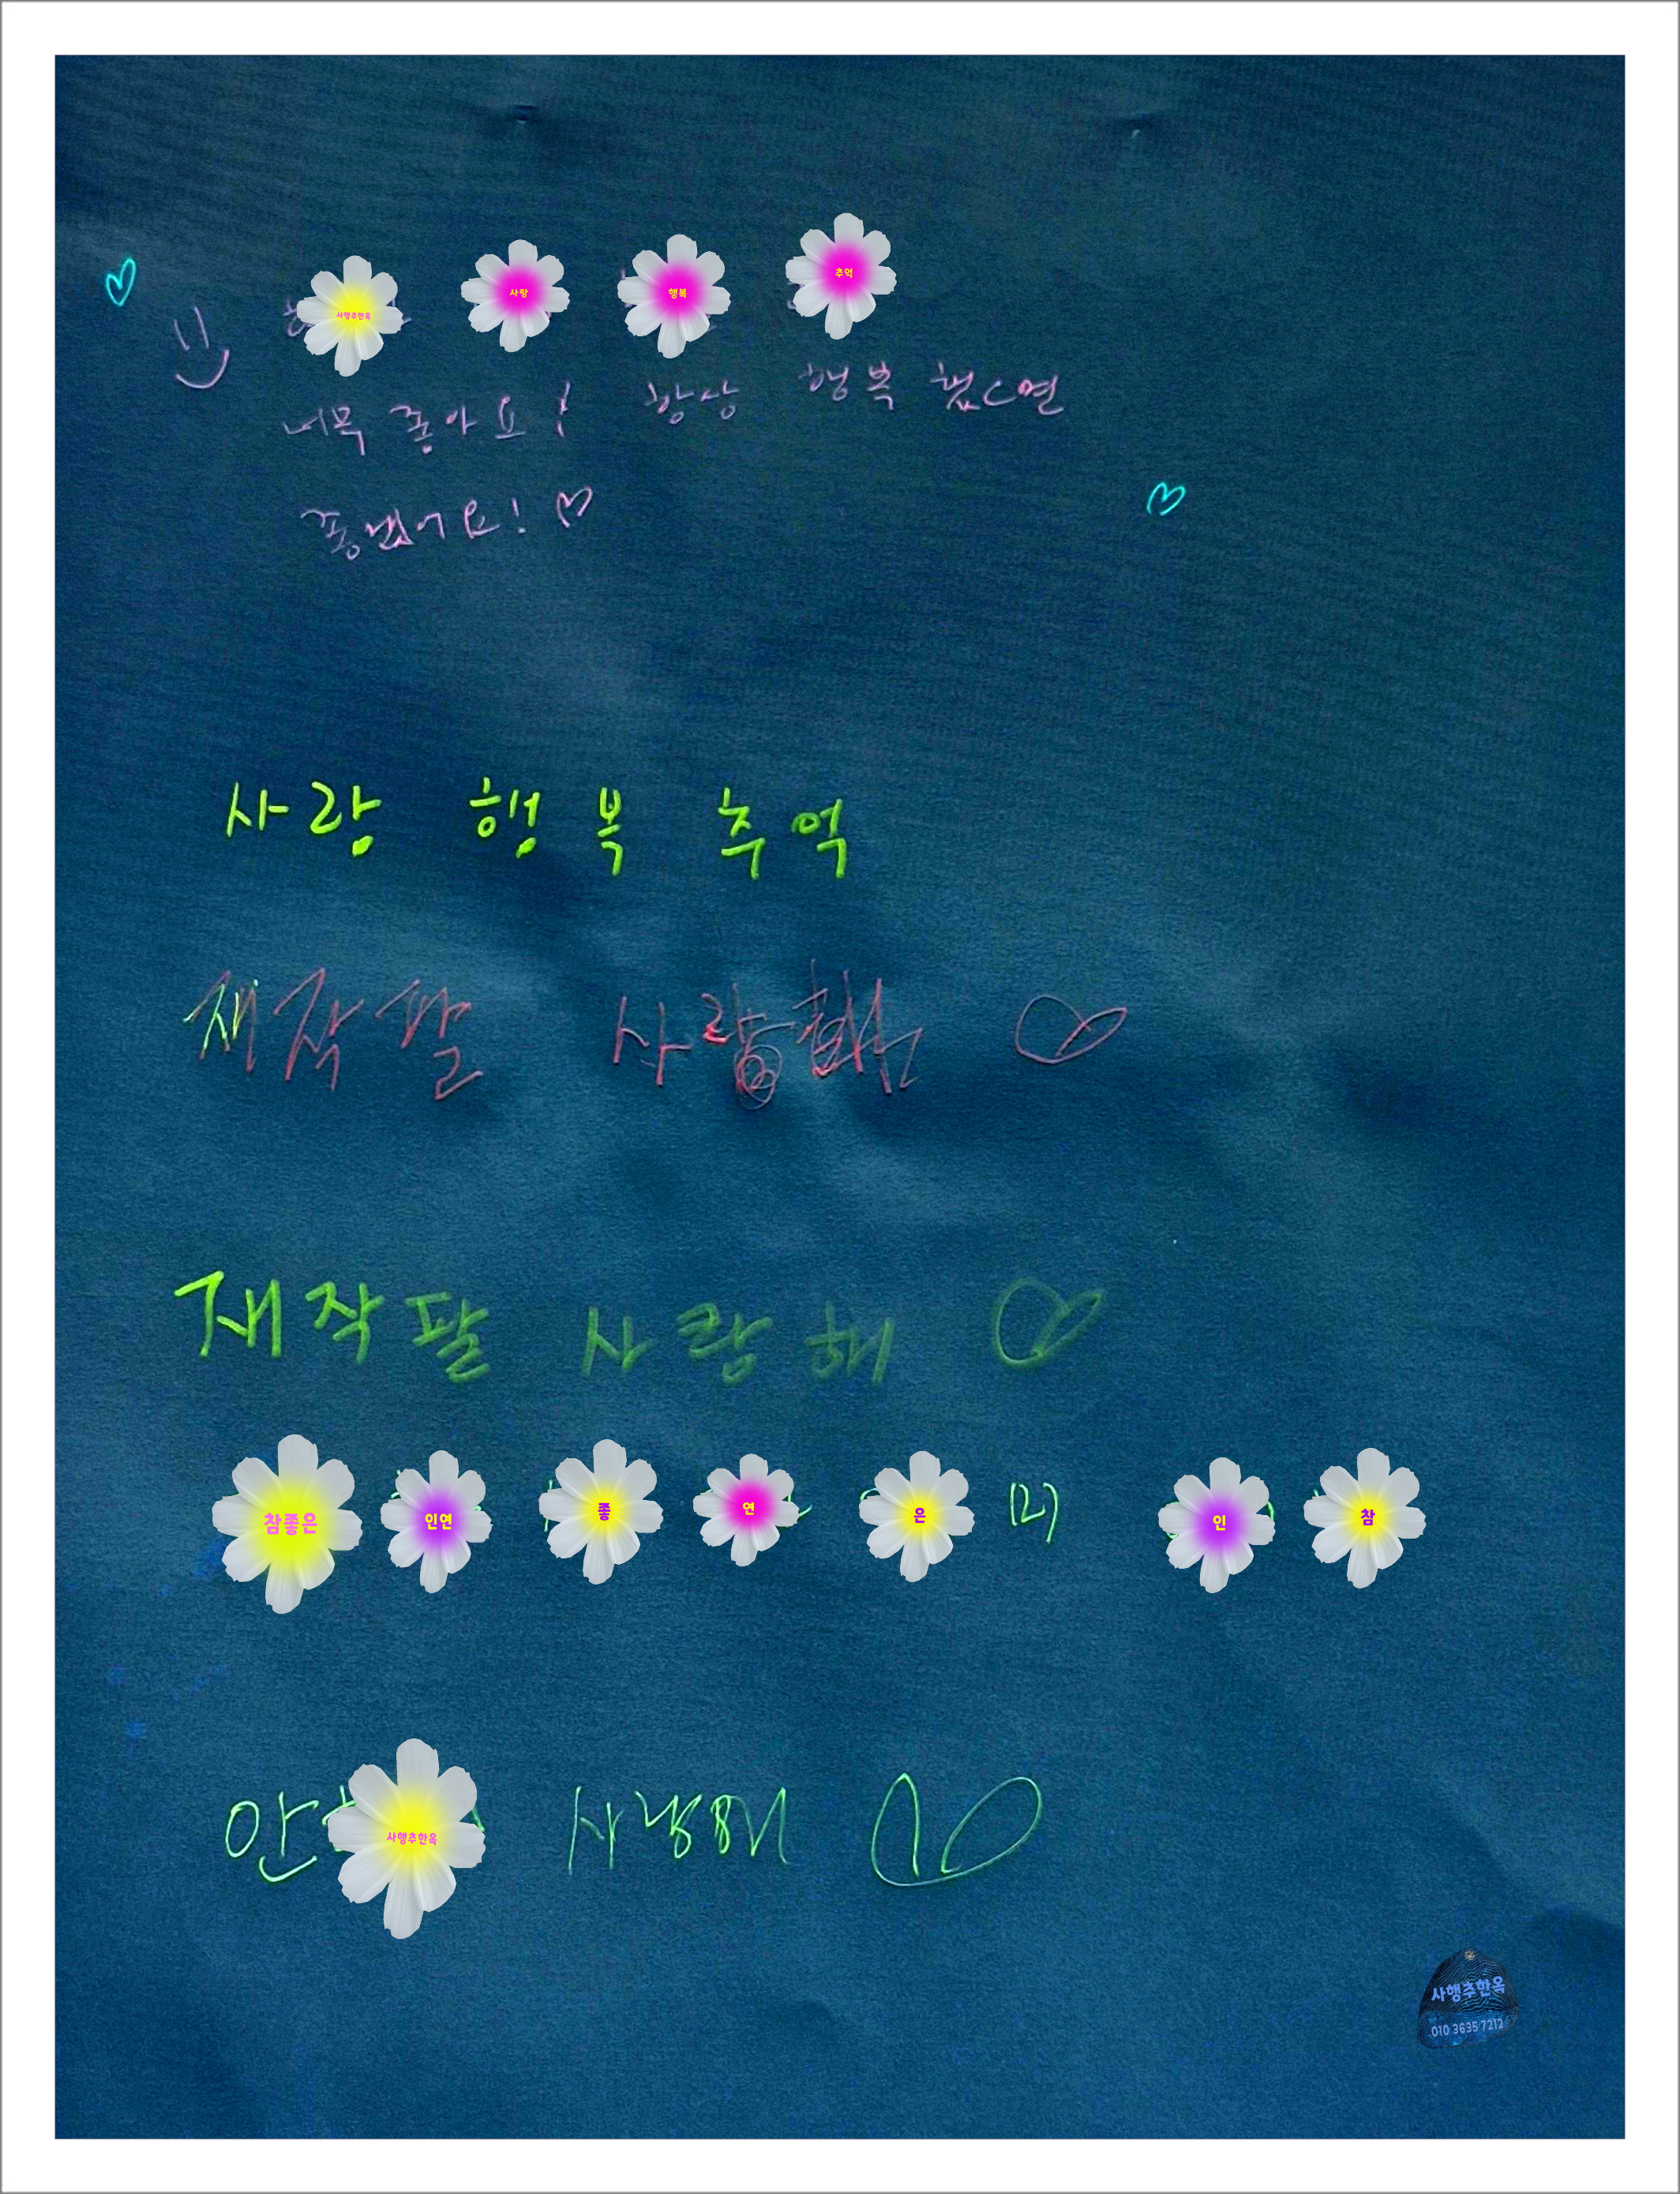 사행추한옥 사랑 행복 추억
너무 좋아요! 항상 행복 했으면
좋겠어요!
사랑 행복 추억
재작팔 사랑해
재작팔 사랑해
참좋은 인연 좋 연 은 인 참
사행추한옥 사랑해
사행추한옥
010 3635 7212